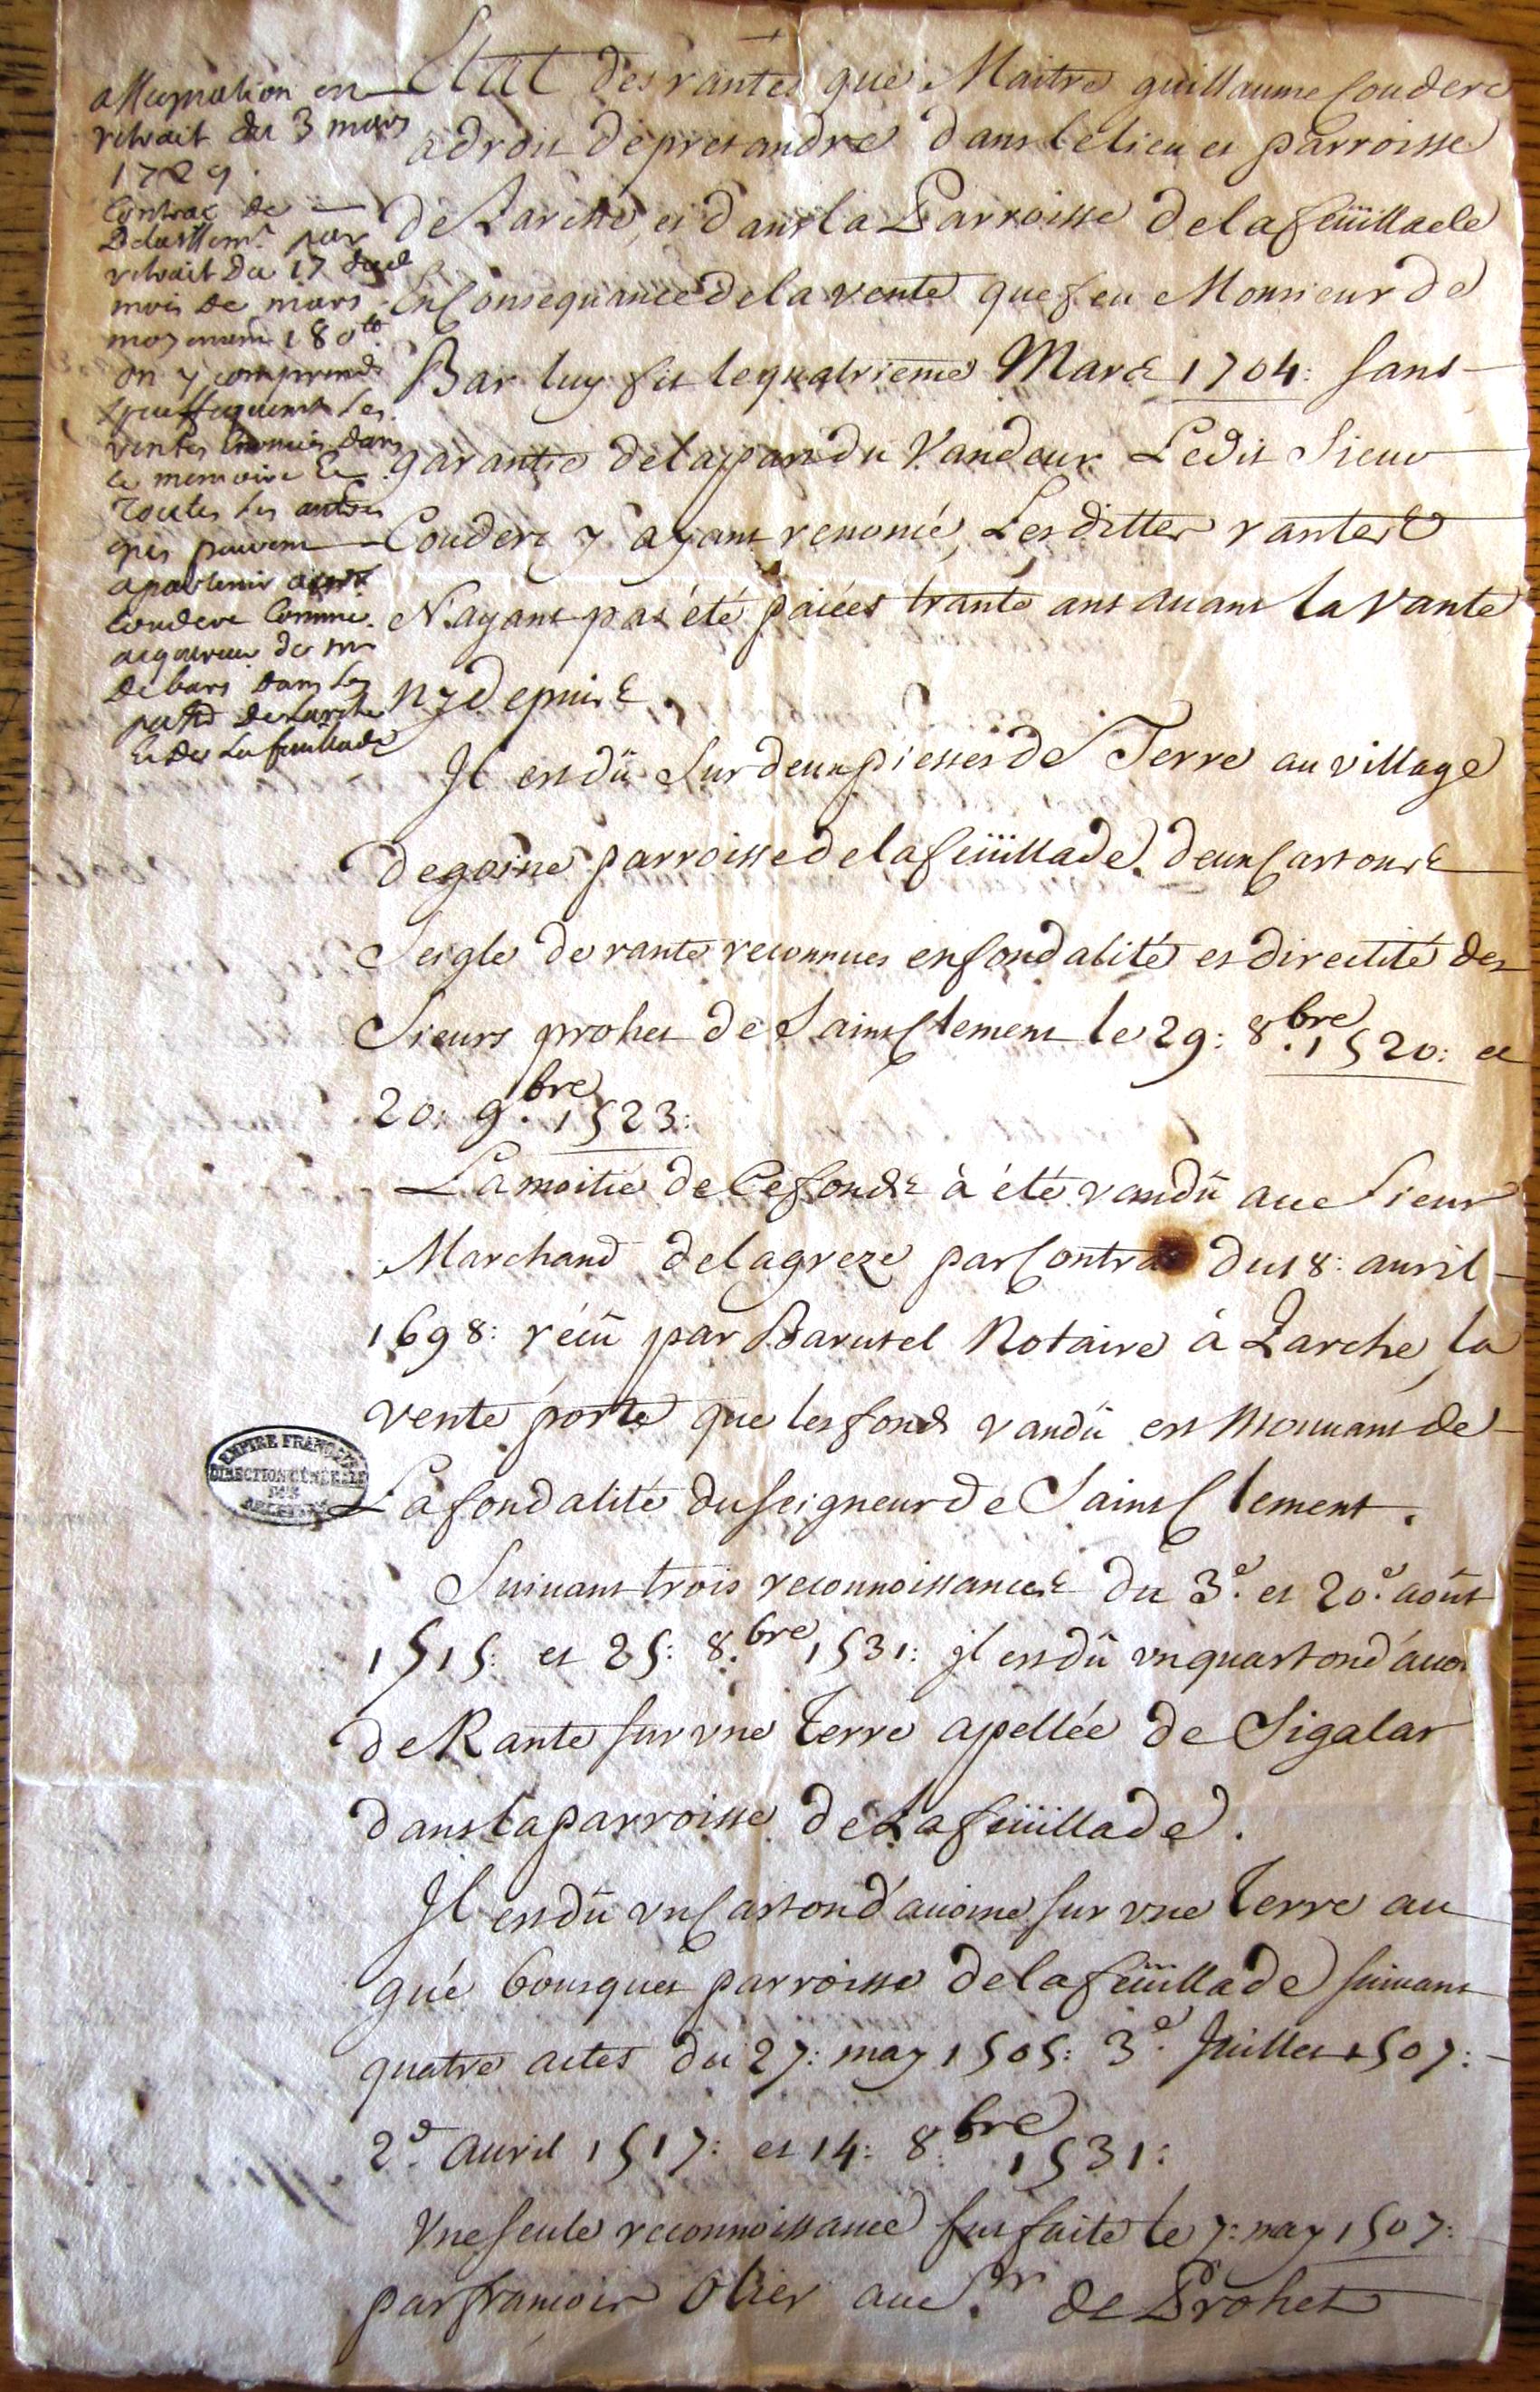 assignation en
retrait du 3 mars
1729.
Contrac de
Delaissemt. par
retrait du 17 dud
mois de mars
moyennent 180 tt
on y comprend
les
rentes enoncées dans
ce memoire et
toutes les autres
qui peuvent
apartenir
Couderc comme
acquereur de mr
de bars dans les
de Larche
et de La feuillade
Etat des rantes que Maitre guillaume Couderc
a droit de pretandre dans le lieu et parroisse
de Larche, et dans la Parroisse de la feüillade
En Consequance de la vente que feu Monsieur de
Bar luy fit le quatrieme Mars 1704: sans
garantie de la part du Vandeur Ledit Sieur
Couderc y ayant renoncé, Lesdittes rantes
N'ayant pas été paiées trante ans auant la vante
ny depuis.
Il est dü sur deux piesses de Terre au village
de goine parroisse de la feüillade. deux Cartons
Seigle de rante reconnues en fondalité et directité des
Sieurs prohet de Saint Clement le 29: 8.bre 1520: et
20: 9.bre 1523:
La moitié de Ce fonds à été vandü au Sieur
Marchand de lagreze par Contrat du 18: auril
1698: récü par Barutel Notaire à Larche, la
vente porte que les fonds vandü est Mouuant de
La fondalité du seigneur de Saint Clement.
Suiuant trois reconnoissances du 3.e et 20.e août
1515: et 25: 8.bre 1531: il est dü vn quarton d'auoi
de Rante sur vne Terre apellée de Sigalar
dans la parroisse de La feüillade.
Il est dü vn Carton d'auoine sur vne Terre au
gué bousquet parroisse de la feüillade suiuant
quatre actes du 27: may 1505: 3.e Juillet 1507:
2.e auril 1517: et 14: 8.bre 1531:
Vne seule reconnoissance fut faite le 7: may 1507:
par francois Olier au S.r de Prohet
EMPIRE FRANÇAIS
DIRECTION GÉNÉRALE
DES